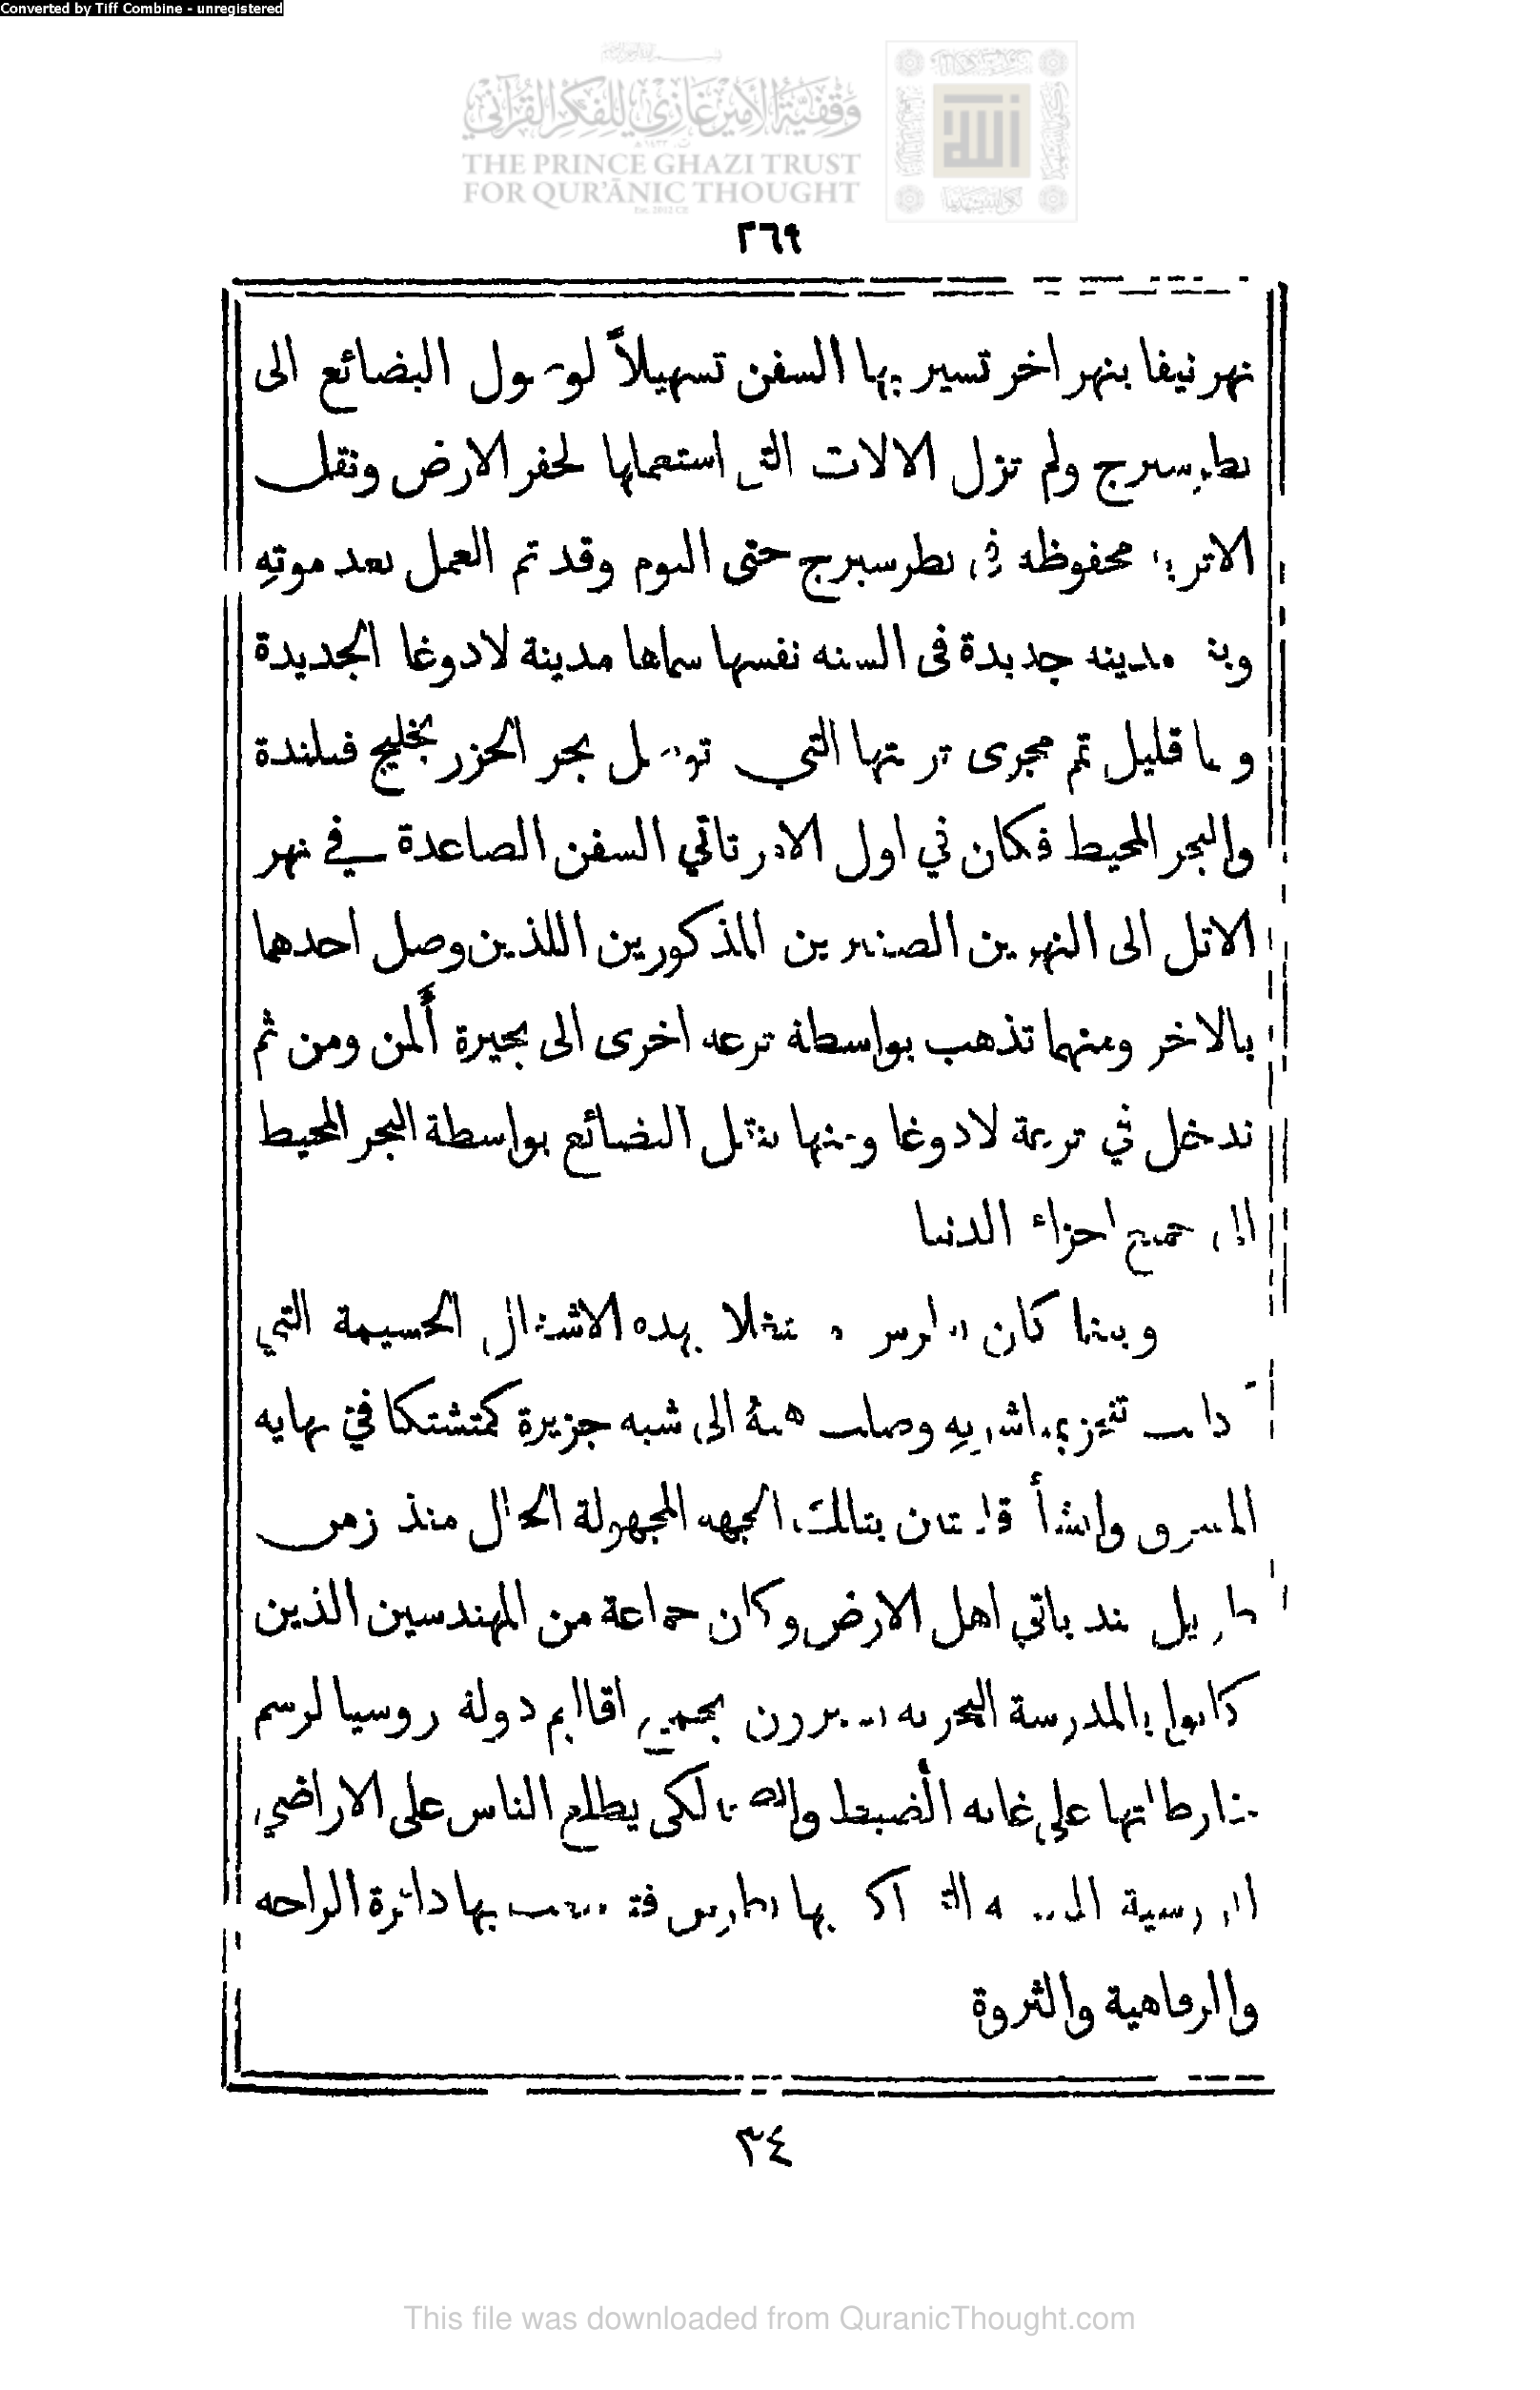 Converted by Tiff Combine - unregistered
وقفية الأمير غازي للفكر القرآني
THE PRINCE GHAZI TRUST
FOR QUR'ĀNIC THOUGHT
٢٦٩
نهر نيفا بنهر اخر تسير بها السفن تسهيلاً لوصول البضائع الى
بطرسبرج ولم تزل الالات التي استعملها لحفر الارض ونقل
الاتربة محفوظه في بطرسبرج حتى اليوم وقد تم العمل بعد موتهِ
مدينه جديدة فى السنه نفسها سماها مدينة لادوغا الجديدة
قليل تم مجرى التي توصل بحر الخزر بخليج فنلندة
والبحر المحيط فكان في اول الامر تاتي السفن الصاعدة في نهر
الاتل الى النهرين الصغيرين المذكورين اللذين وصل احدهما
بالاخر ومنهما تذهب بواسطة ترعه اخرى الى بحيرة أَلمن ومن ثم
تدخل في لادوغا ومنها تنقل البضائع بواسطة البحر المحيط
الى جميع اجزاء الدنيا
وبينما كان بطرس مشتغلا بهذه الاشغال الجسيمة التي
كانت تنجز وصلت الى شبه جزيرة كمتشتكا في نهايه
المشرق وانشأ بتلك الجهه المجهولة الحال منذ زمن
طويل عند باقي اهل الارض وكان جماعة من المهندسين الذين
كانوا بالمدرسة البحريه يسيرون بجميع اقاليم دولة روسيا لرسم
خارطاتها على غايه الضبط لكى يطلع الناس على الاراضي
الروسية بها بطرس بها دائرة الراحه
والرفاهية والثروة
٣٤
This file was downloaded from QuranicThought.com